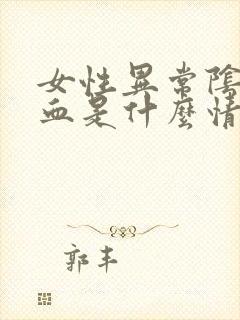 女性異常陰
血是什麼情
郭丰